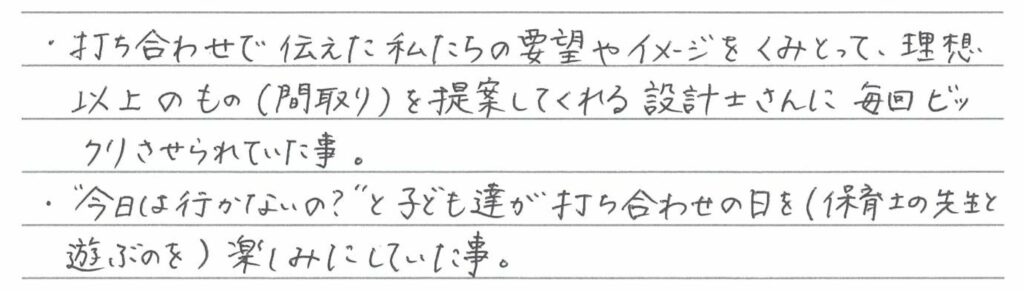 ・打ち合わせで伝えた私たちの要望やイメージをくみとって、理想
以上のもの(間取り)を提案してくれる設計士さんに毎回ビッ
クリさせられていた事。
・"今日は行かないの?"と子ども達が打ち合わせの日を(保育士の先生と
遊ぶのを)楽しみにしていた事。